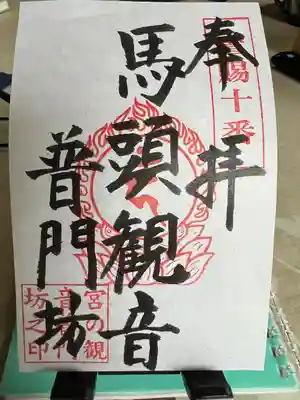 陽十番
奉拝
馬頭観音
普門坊
宮の観
音
坊之印